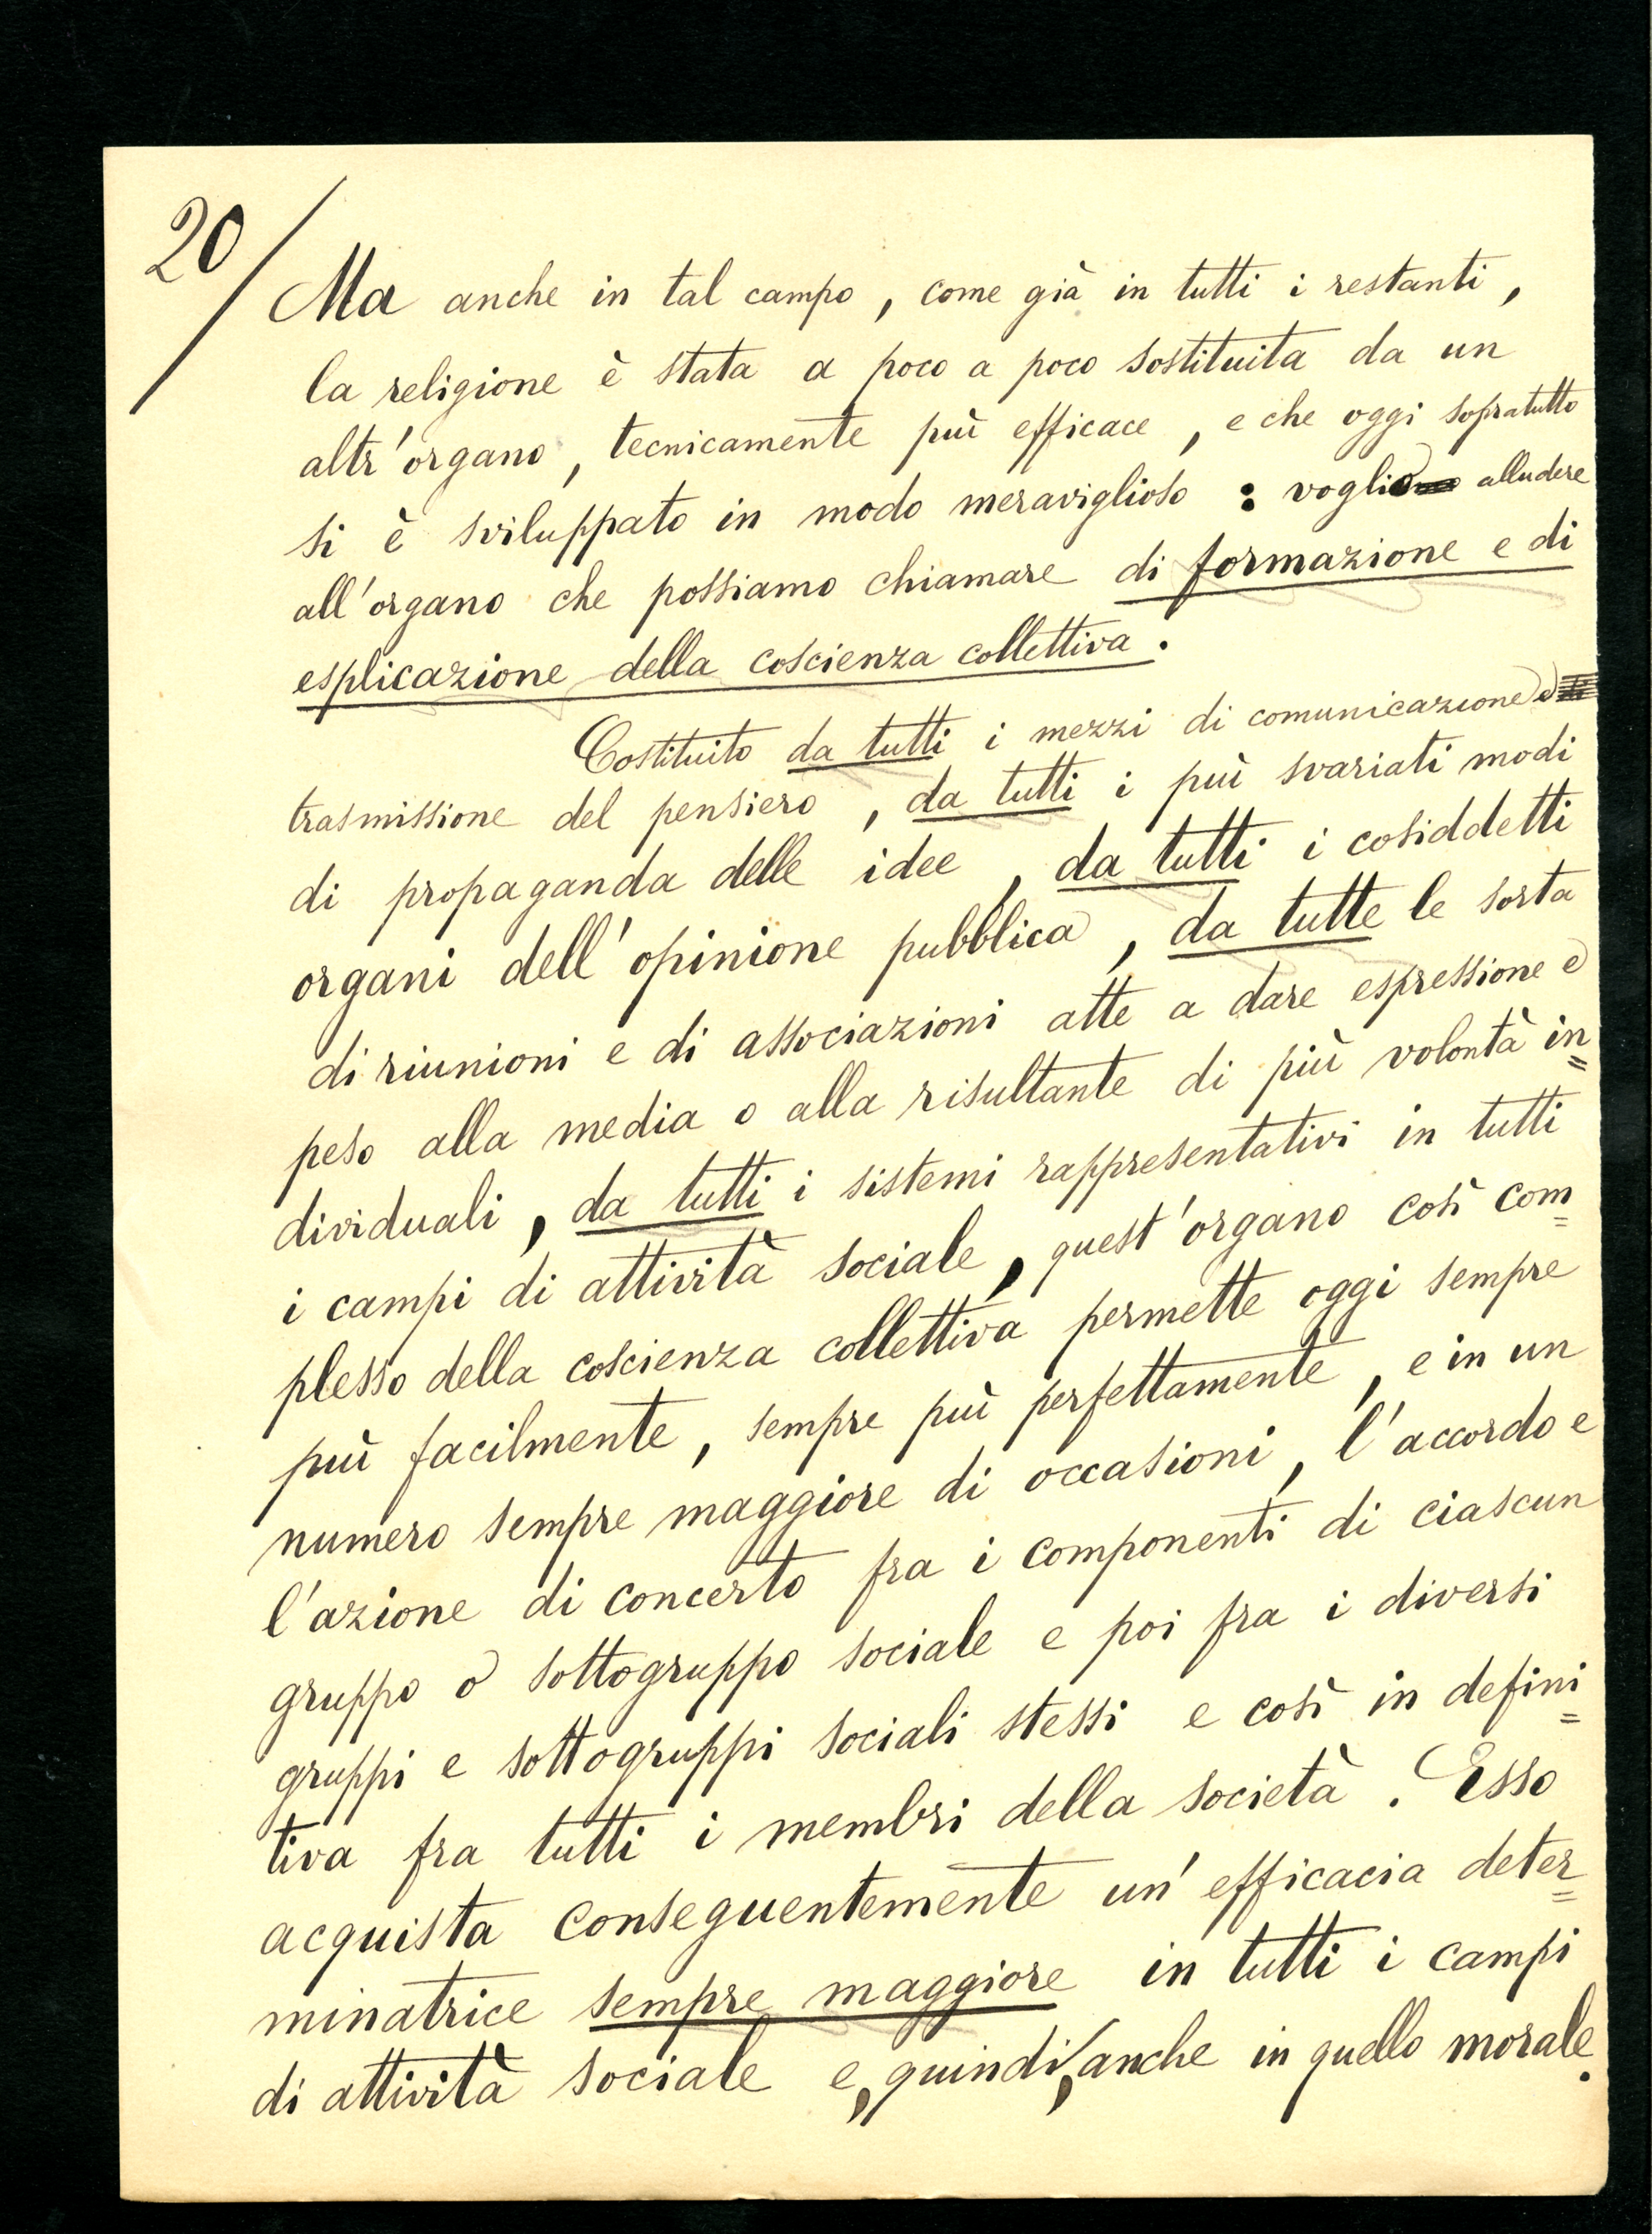 20/
Ma anche in tal campo, come già in tutti i restanti,
la religione è stata a poco a poco sostituita da un
altr'organo, tecnicamente più efficace, e che oggi sopratutto
si è sviluppato in modo meraviglioso : voglio alludere
all'organo che possiamo chiamare di formazione e di
esplicazione della coscienza collettiva.
Costituito da tutti i mezzi di comunicazione e
trasmissione del pensiero, da tutti i più svariati modi
di propaganda delle idee, da tutti i cosiddetti
organi dell'opinione pubblica, da tutte le sorta
di riunioni e di associazioni atte a dare espressione e
peso alla media o alla risultante di più volontà in=
dividuali, da tutti i sistemi rappresentativi in tutti
i campi di attività sociale, quest'organo così com=
plesso della coscienza collettiva permette oggi sempre
più facilmente, sempre più perfettamente, e in un
numero sempre maggiore di occasioni, l'accordo e
l'azione di concerto fra i componenti di ciascun
gruppo o sottogruppo sociale e poi fra i diversi
gruppi e sottogruppi sociali stessi e così in defini=
tiva fra tutti i membri della società. Esso
acquista conseguentemente un'efficacia deter=
minatrice sempre maggiore in tutti i campi
di attività sociale e, quindi, anche in quello morale.